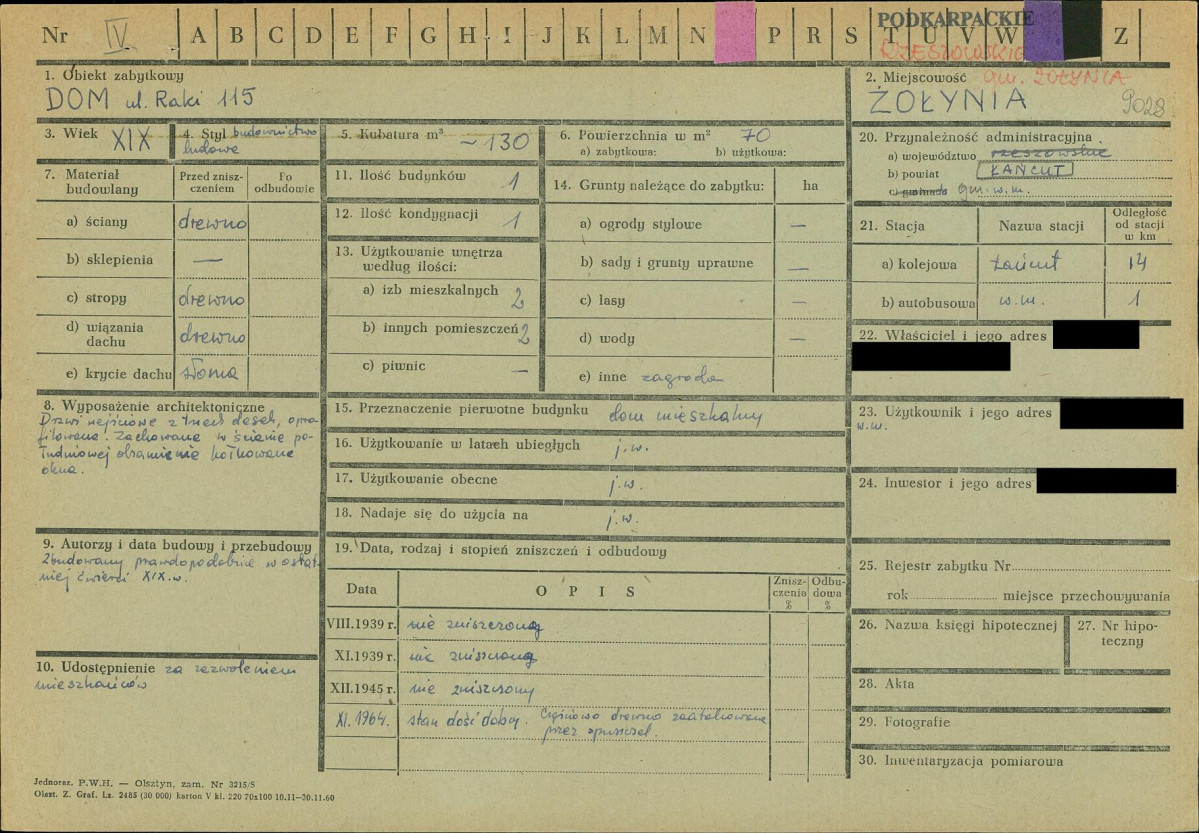 Nr IV A B C D E F G H I J K L M N P R S T U V W Z
PODKARPACKIE
RZESZOWSKIE
1. Obiekt zabytkowy
DOM ul. Raki 115
2. Miejscowość gm. ŻOŁYNIA
ŻOŁYNIA 9028
3. Wiek XIX
4. Styl budownictwo
ludowe
5. Kubatura m³ ~130
6. Powierzchnia w m² 70
a) zabytkowa: b) użytkowa:
7. Materiał
budowlany
Przed znisz-
czeniem
Po
odbudowie
a) ściany drewno
b) sklepienia —
c) stropy drewno
d) wiązania
dachu drewno
e) krycie dachu słoma
8. Wyposażenie architektoniczne
Drzwi wejściowe z trzech desek, opro-
filowane. Zachowane w ścianie po-
łudniowej obramienie kołkowane
okna.
9. Autorzy i data budowy i przebudowy
Zbudowany prawdopodobnie w ostat-
niej ćwierci XIX w.
10. Udostępnienie za zezwoleniem
mieszkańców
11. Ilość budynków 1
12. Ilość kondygnacji 1
13. Użytkowanie wnętrza
według ilości:
a) izb mieszkalnych 2
b) innych pomieszczeń 2
c) piwnic —
14. Grunty należące do zabytku: ha
a) ogrody stylowe —
b) sady i grunty uprawne —
c) lasy —
d) wody —
e) inne zagroda
15. Przeznaczenie pierwotne budynku dom mieszkalny
16. Użytkowanie w latach ubiegłych j.w.
17. Użytkowanie obecne j.w.
18. Nadaje się do użycia na j.w.
19. Data, rodzaj i stopień zniszczeń i odbudowy
Data OPIS
Znisz-
czenia
%
Odbu-
dowa
%
VIII.1939 r. nie zniszczony
XI.1939 r. nie zniszczony
XII.1945 r. nie zniszczony
XI.1964. stan dość dobry. Częściowo drewno zaatakowane
przez spuszczel.
20. Przynależność administracyjna
a) województwo rzeszowskie
b) powiat ŁAŃCUT
c) gromada gm. w.m.
21. Stacja Nazwa stacji
Odległość
od stacji
w km
a) kolejowa Łańcut 14
b) autobusowa w.m. 1
22. Właściciel i jego adres
23. Użytkownik i jego adres
w.m.
24. Inwestor i jego adres
25. Rejestr zabytku Nr
rok miejsce przechowywania
26. Nazwa księgi hipotecznej
27. Nr hipo-
teczny
28. Akta
29. Fotografie
30. Inwentaryzacja pomiarowa
Jednoraz. P.W.H. — Olsztyn, zam. Nr 3215/S
Olszt. Z. Graf. Lz. 2485 (30 000) karton V kl. 220 70x100 10.11—30.11.60